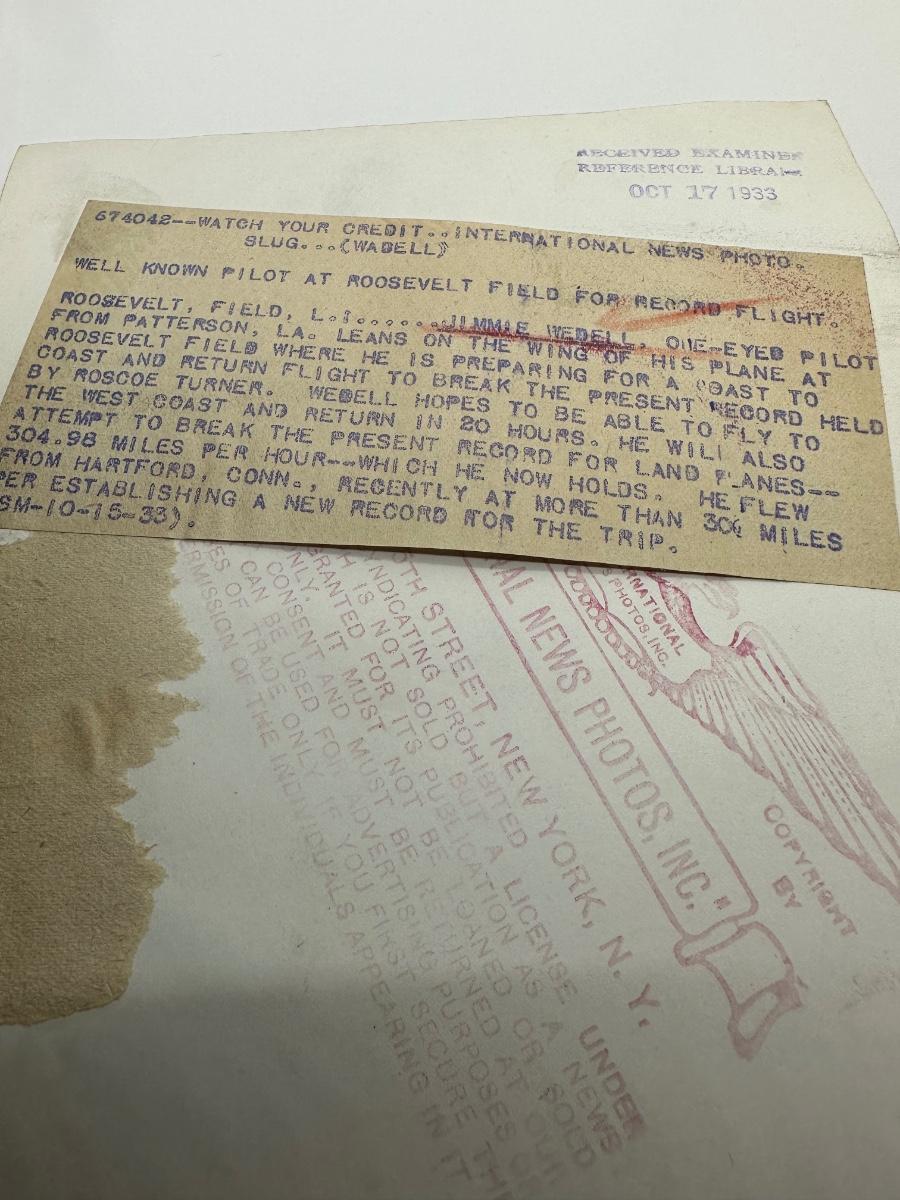 RECEIVED EXAMINER
REFERENCE LIBRA
OCT 17 1933
674042--WATCH YOUR CREDIT..INTERNATIONAL NEWS PHOTO.
SLUG...(WADELL)
WELL KNOWN PILOT AT ROOSEVELT FIELD FOR RECORD FLIGHT.
ROOSEVELT, FIELD, L.I.....JIMMIE WEDELL, ONE-EYED PILOT
FROM PATTERSON, LA. LEANS ON THE WING OF HIS PLANE AT
ROOSEVELT FIELD WHERE HE IS PREPARING FOR A COAST TO
COAST AND RETURN FLIGHT TO BREAK THE PRESENT RECORD HELD
BY ROSCOE TURNER. WEDELL HOPES TO BE ABLE TO FLY TO
THE WEST COAST AND RETURN IN 20 HOURS. HE WILL ALSO
ATTEMPT TO BREAK THE PRESENT RECORD FOR LAND PLANES--
304.98 MILES PER HOUR--WHICH HE NOW HOLDS. HE FLEW
FROM HARTFORD, CONN., RECENTLY AT MORE THAN 306 MILES
PER ESTABLISHING A NEW RECORD FOR THE TRIP.
SM-10-15-33).
COPYRIGHT
BY
RNATIONAL
PHOTOS, INC.
NAL NEWS PHOTOS, INC."
OTH STREET, NEW YORK, N. Y.
YNDICATING PROHIBITED UNDER
IS NOT SOLD BUT A LICENSE
GRANTED FOR ITS PUBLICATION AS A NEWS
ONLY. IT MUST NOT BE LOANED OR SOLD
CONSENT AND MUST BE RETURNED AT OUR
CAN BE USED FOR ADVERTISING PURPOSES
ES OF TRADE ONLY IF YOU FIRST SECURE THE
ERMISSION OF THE INDIVIDUALS APPEARING IN IT